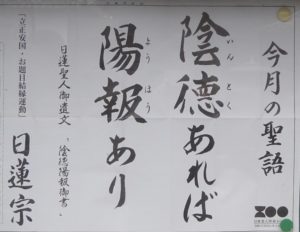 今月の聖語
陰徳あれば
いんとく
陽報あり
ようほう
日蓮聖人御遺文『陰徳陽報御書』
「立正安国・お題目結縁運動」
日蓮宗